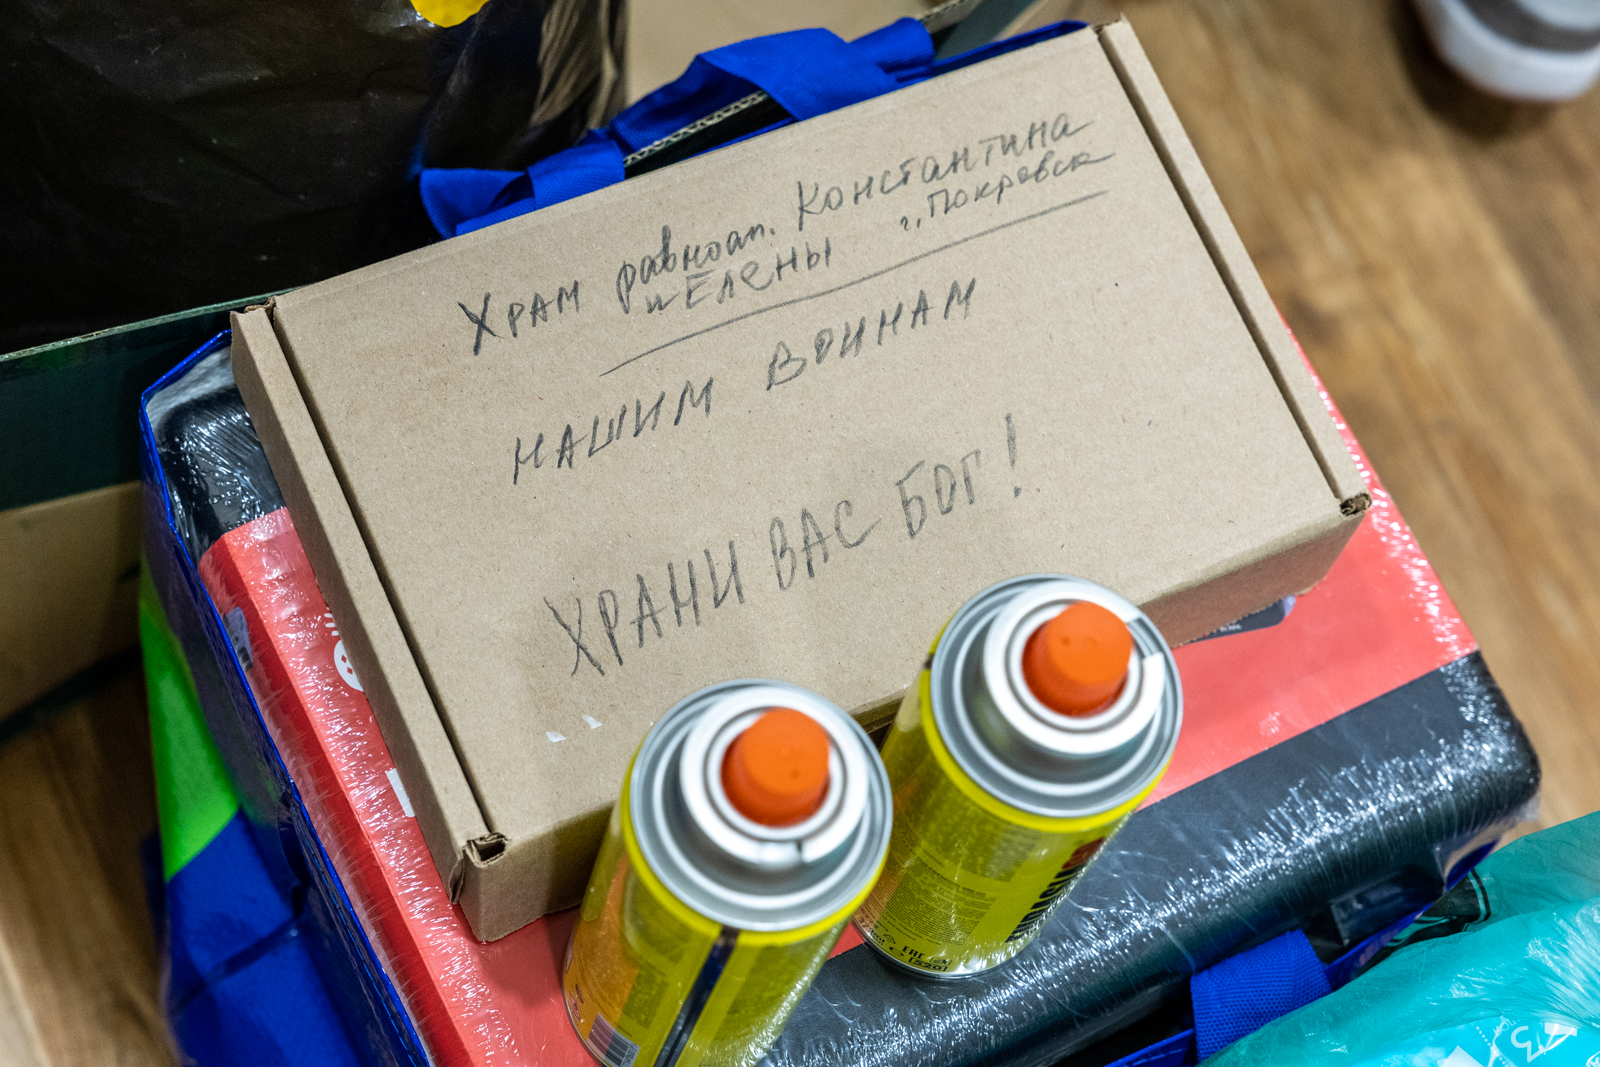 Храм равноап. Константина
и Елены г. Покровск
НАШИМ ВОИНАМ
ХРАНИ ВАС БОГ!
EAC
[520]